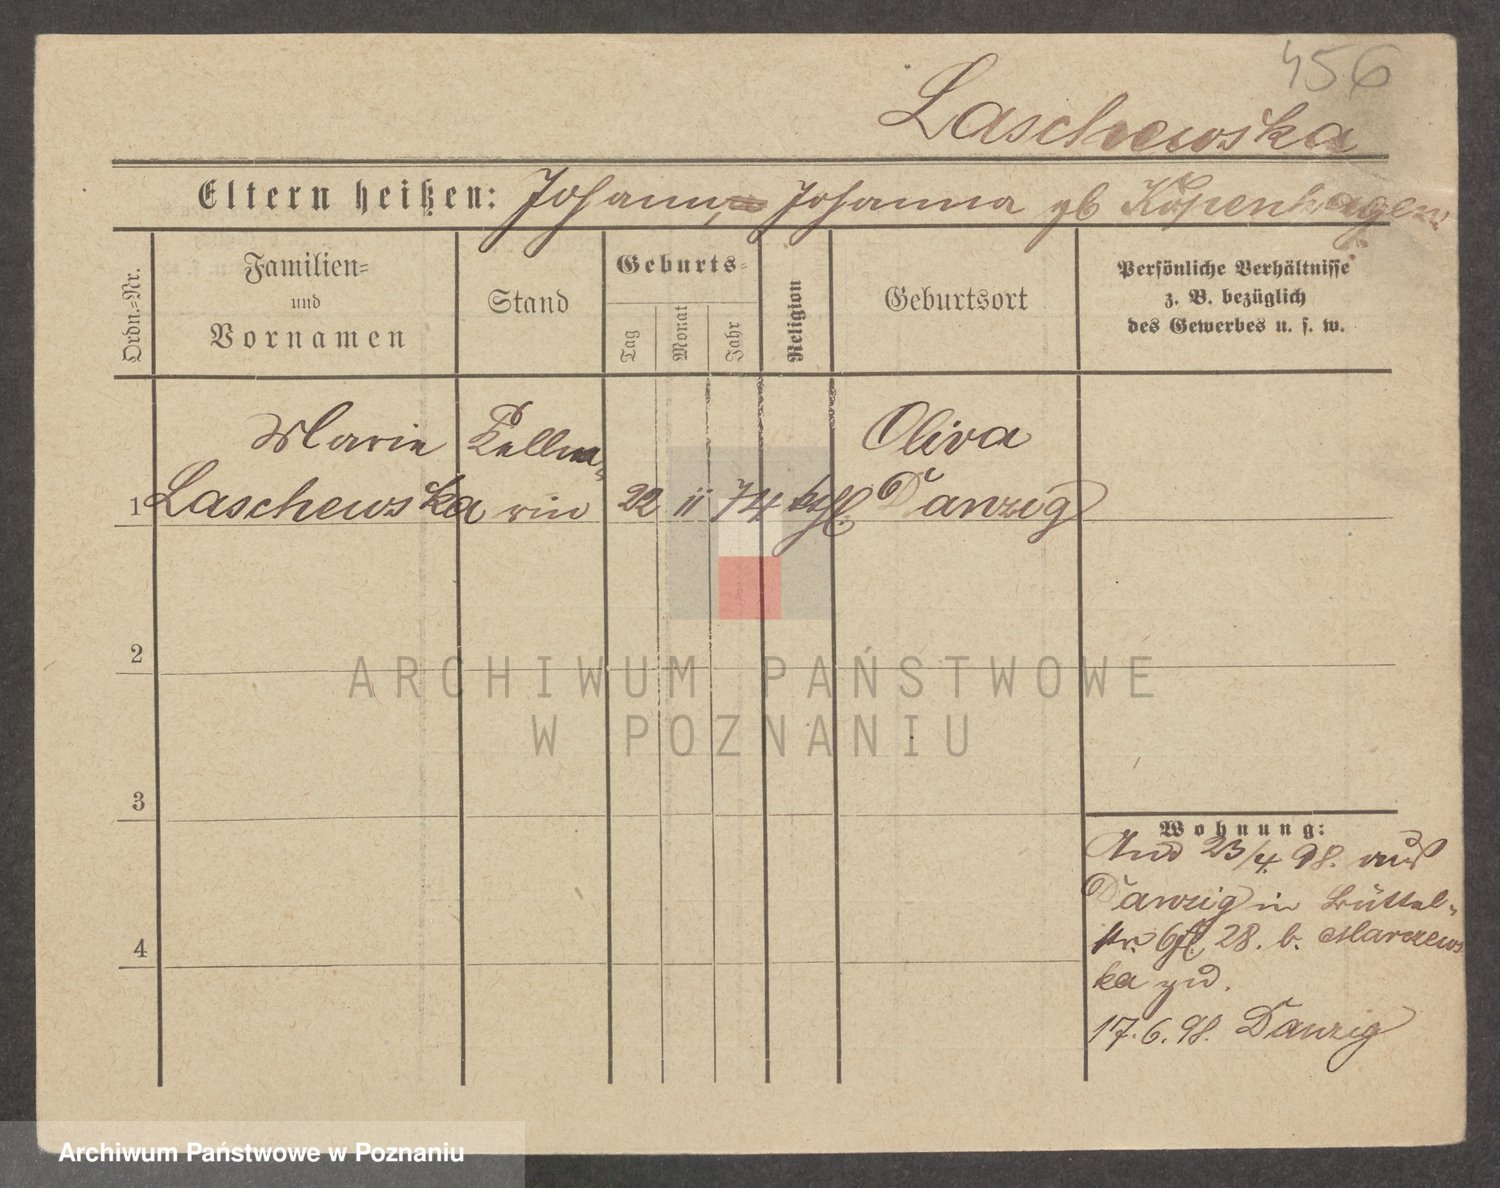 456
Laschewska
Eltern heißen: Johann, Johanna gb Kopenhagen
Ordn.=Nr.
Familien=
und
Vornamen
Stand
Geburts=
Tag
Monat
Jahr
Religion
Geburtsort
Persönliche Verhältnisse
z. B. bezüglich
des Gewerbes u. s. w.
Marie Kellne= Oliva
1 Laschewska rin 22 11 74 kthl. Danzig
2
ARCHIWUM PAŃSTWOWE
W POZNANIU
3
Wohnung:
23/4 98. aus
Danzig in Büttel=
str. 28. b. Marczews
ka
17.6.98. Danzig
4
Archiwum Państwowe w Poznaniu